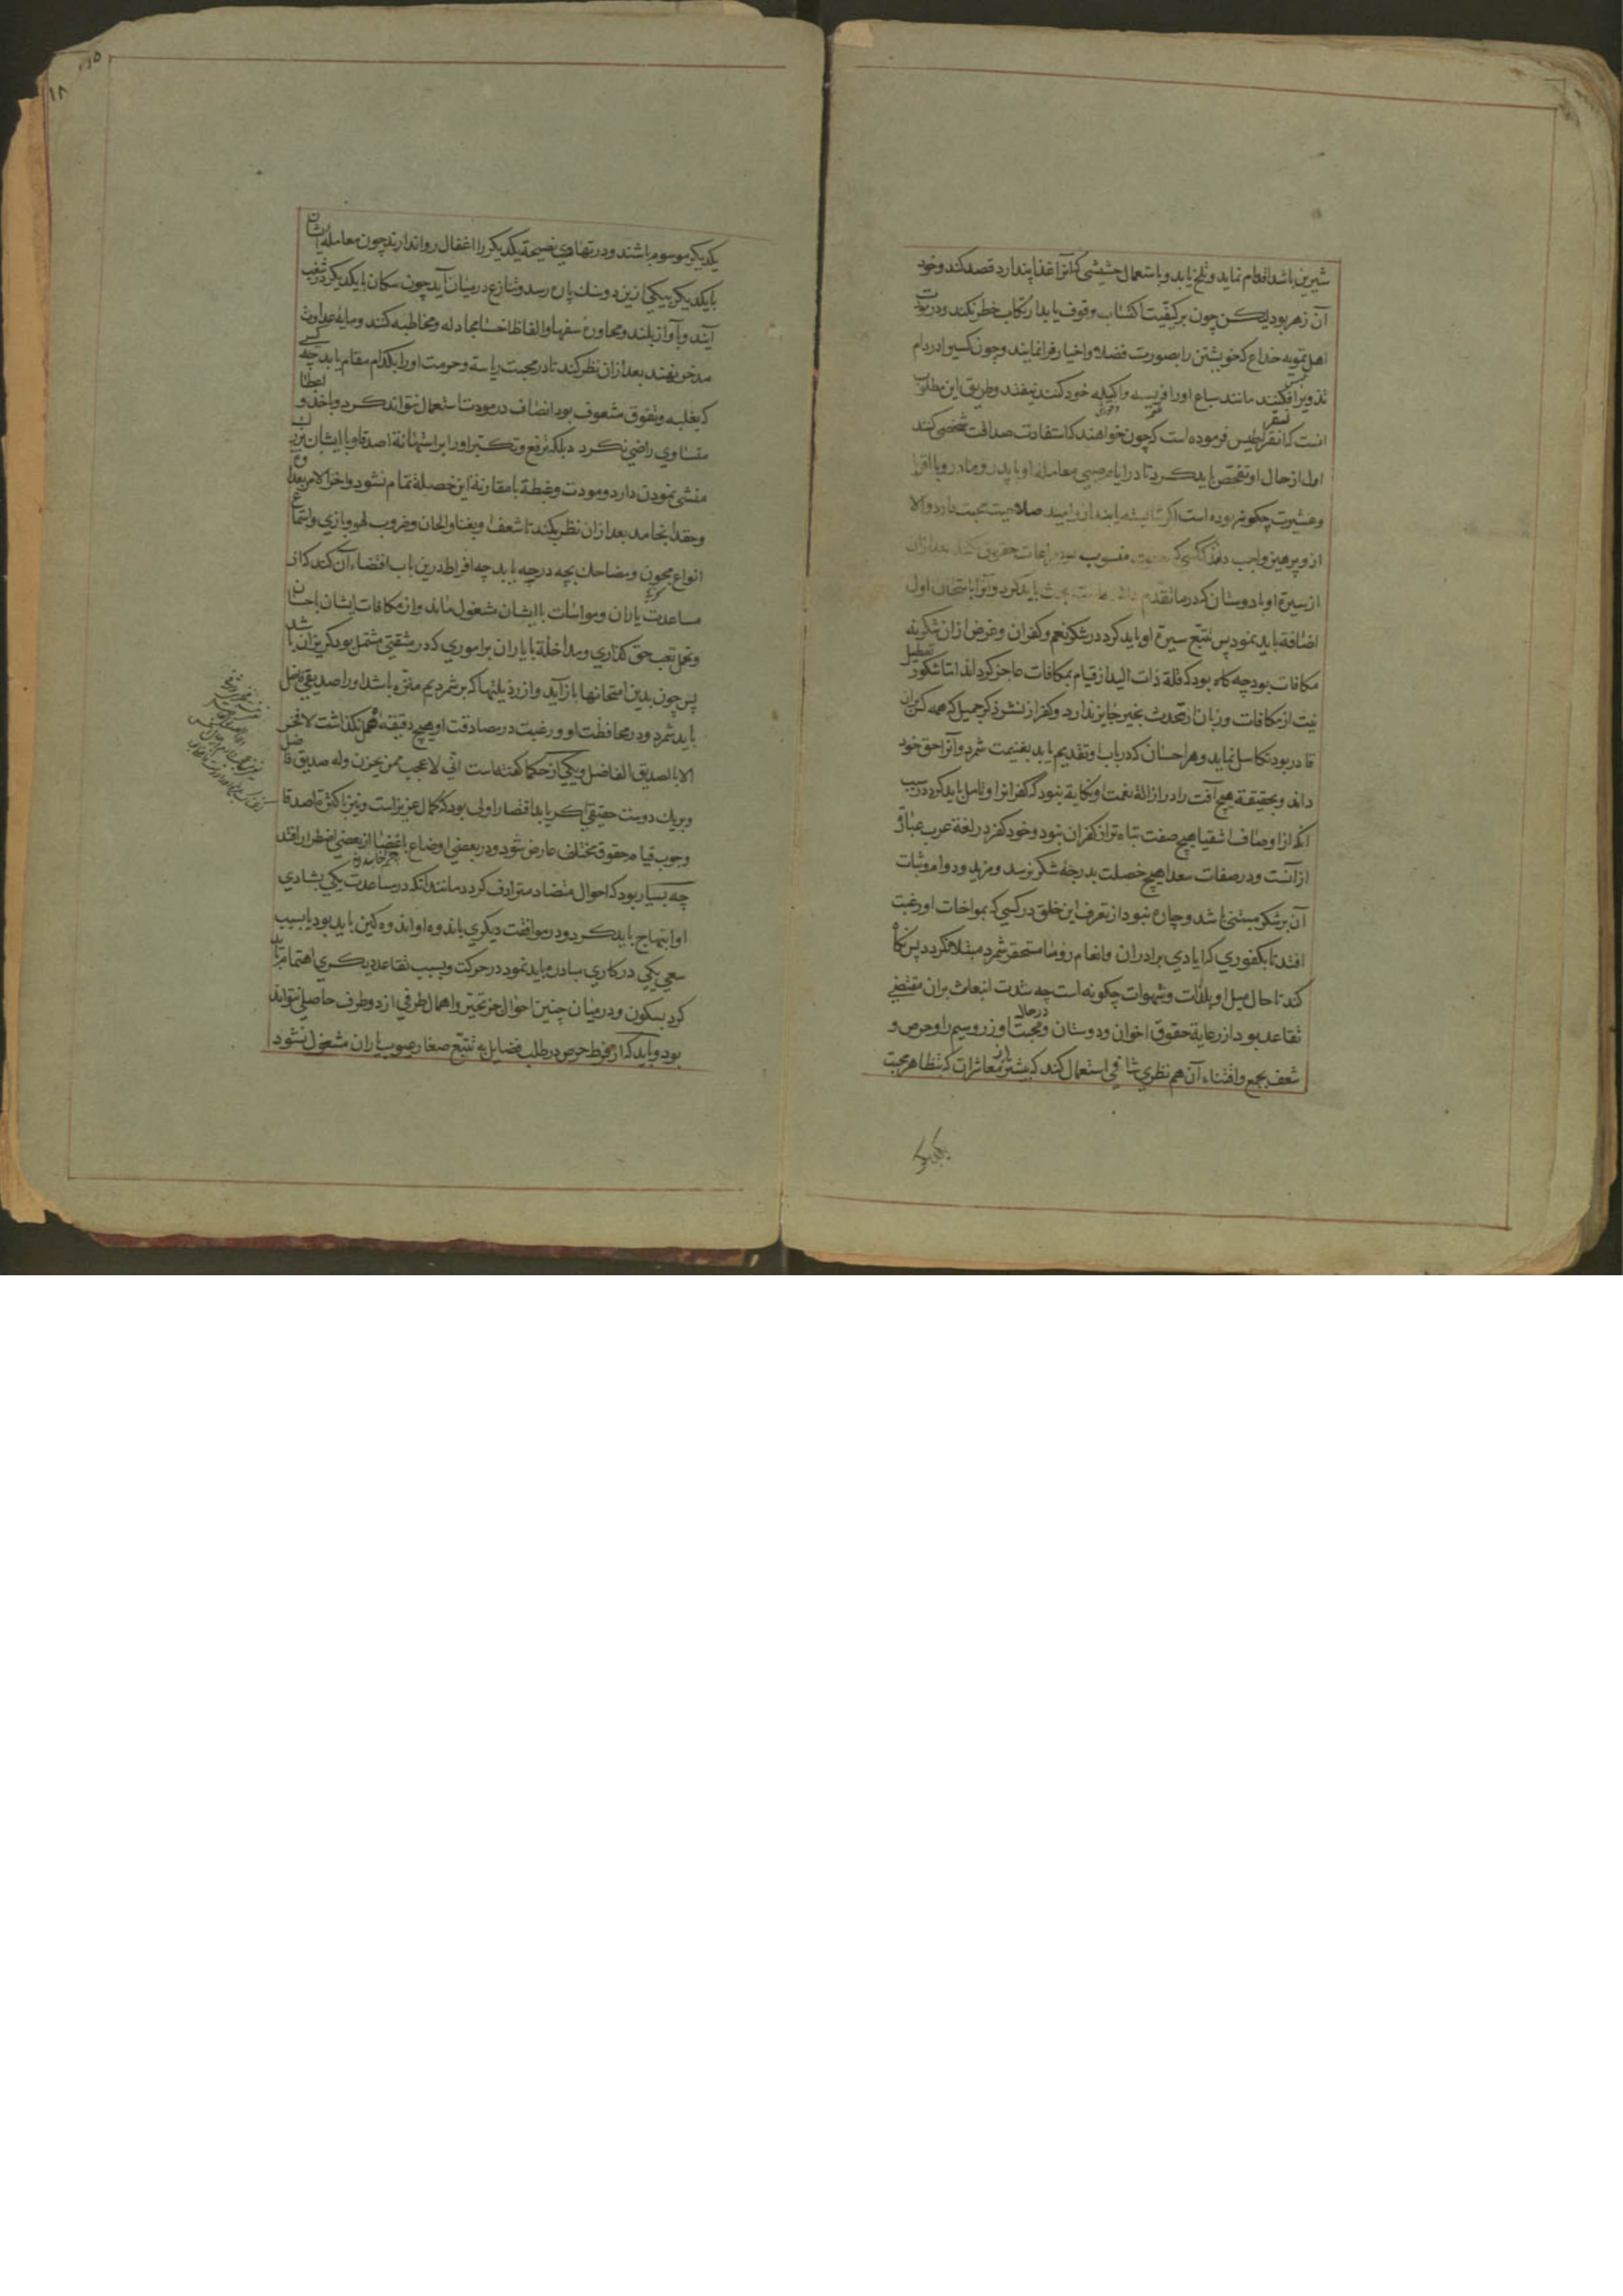 شیرین باشد اقدام نماید و تلخ یابد و باستعمال حشیشی که آنرا غذا پندارد قصد کند و خود
آن زهر بود لیکن چون بر کیفیت اکتساب وقوف یابد ارتکاب خطر نکند و در مودت
اهل تمویه خداع که خویشتن را بصورت فضلا و اخیار فرا نمایند و چون کسیرا در دام
تذویر افکنند مانند سباع اورا فریسه و اکیله خود کنند نیفتد و طریق این مطلوب
انست که انقراطیس فرموده است که چون خواهند که استفادت صداقت شخصی کنند
اول از حال او تفحص باید کرد تا در ایام صبی معامله او با پدر و مادر و با اقربا
و عشیرت چگونه بوده است اگر شایسته یابند ازو امید صلاحیت محبت دارد و الا
ازو پرهیز واجب داند که کسی که منسوب بود مراعات حقوق نکند بعد ازان
از سیرة او با دوستان که در ما تقدم باید کرد و آنرا با امتحان اول
اضافة باید نمود پس تتبع سیرة او باید کرد در شکر نعم و کفران و غرض ازان شکر نه
مکافات بود چه گاه بود که قلة ذات الید از قیام بمکافات عاجز گرداند اما شکور تعطیل
نیت از مکافات و زبان از تحدث بخیر جایز ندارد و کفر از نشر ذکر جمیل که همه کس بران
قادر بود تکاسل نماید و هر احسان که در باب او تقدیم یابد بغنیمت شمرد و آنرا حق خود
داند و بحقیقة هیچ آفت را در ازالة نعمت او نکایة نبود که کفرانرا و تامل باید کرد در سبب
انکه از اوصاف اشقیا هیچ صفت تباه تر از کفران نبود و خود کفر در لغة عرب عبارة
از آنست و در صفات سعدا هیچ خصلت بدرجه شکر نرسد و مزید و دوام و ثبات
آن بر شکر مبتنی باشد و چاره نبود از تعرف این خلق در کسی که بمواخات او رغبت
افتد تا بکفوری که ایادی برادران و انعام روسا مستحقر شمرد مبتلا نگردد پس نگاه
کند تا حال میل او بلذات و شهوات چگونه است چه شدت انبعاث بران مقتضی
تقاعد بود از رعایة حقوق اخوان و دوستان و در حال محبت او زر و سیم را و حرص و
شعف بجمع و اقتناء آن هم نظری شافی استعمال کند که بیشتر از معاشرات که بتظاهر محبت
یکدیگر
یکدیگر موسوم باشند و در تهادی نصیحة یکدیگر را اغفال روا ندارند چون معاملة ایشان
با یکدیگر بیکی ازین دو سنک پاره رسد و تنازع در میان آید چون سکان با یکدیگر در شغب
آیند و بآواز بلند و محاورة سفها و الفاظ اخسا مجادله و مخاطبه کنند و مایه عداوت
مدخر نهند بعد ازان نظر کند تا در محبت ریاسة و حرمت اورا بکدام مقام یابد چه کسی
که بغلبه و تفوق شعوف بود انصاف در مودت استعمال نتواند کرد و باخذ و اعطا
متساوی راضی نکردد بلکه ترفع و تکبر اورا بر استهانة اصدقا و با ایشان بزرک
منشی نمودن دارد و مودت و غبطة با مقارنة این خصلة تمام نشود و اخر الامر بعداوة
و حقد انجامد بعد ازان نظر بکند تا شعف او بغنا و الحان و ضروب لهو و بازی و استماع
انواع مجون و مضاحک بچه درجه یابد چه افراط درین باب اقتضاء آن کند که از
مساعدت یاران و مواسات با ایشان شغول ماند و از مکافات ایشان باحسان
و تحمل تعب حق گذاری و مداخلة با یاران بر اموری که در مشقتی مشتمل بود گریزان باشد
پس چون بدین امتحانها باز آید و از رذیلتها که بر شمردیم منزه باشد اورا صدیقی فاضل
باید شمرد و در محافظت او و رغبت در مصادقت او هیچ دقیقه مهمل نگذاشت لا فخر
الا بالصدیق الفاضل و یکی از حکما گفته است انی لاعجب ممن یحزن و له صدیق فاضل
و بر یک دوست حقیقی اگر یابد اقتصار اولی بود که کمال عزیز است و نیز با کثرة اصدقا
وجوب قیام حقوق مختلف عارض شود و در بعضی اوضاع باغضا از بعضی اضطرار افتد
چه بسیار بود که احوال متضاد مترادف گردد مانند انکه در مساعدت یکی بشادی
او ابتهاج باید کرد و در موافقت دیگری باندوه او اندوه کین باید بود یا بسبب
سعی یکی در کاری مبادرة باید نمود در حرکت و بسبب تقاعد دیگری اهتمام باید
کرد بسکون و در میان چنین احوال جز تحیر و اهمال طرفی از دو طرف حاصلی نتواند
بود و باید که از فرط حرص در طلب فضایل به تتبع صغار عیوب یاران مشغول نشود